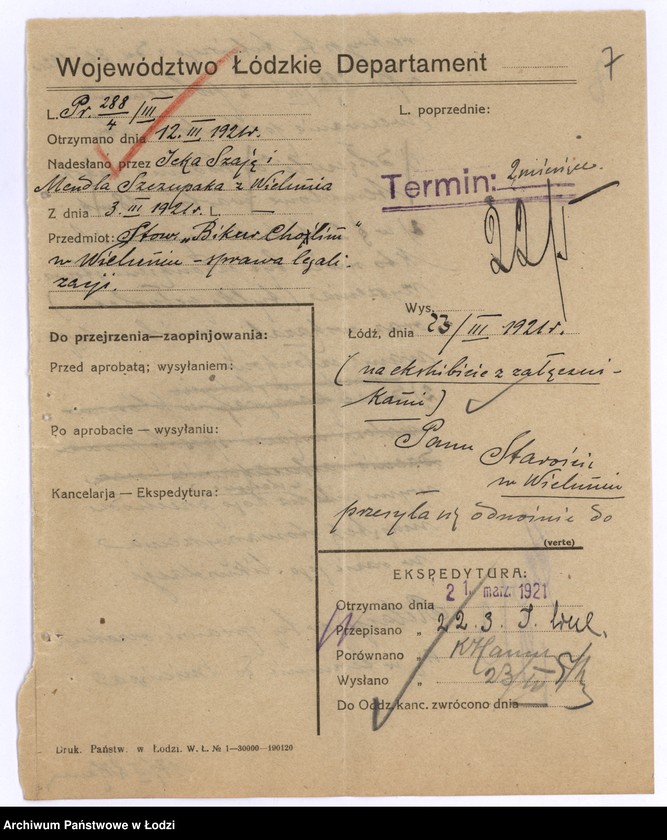 7
Województwo Łódzkie Departament
L. Pr. 288/4 /III
L. poprzednie:
Otrzymano dnia 12. III 1921r.
Nadesłano przez Icka Szaję i
Mendla Szczupaka z Wielunia
Termin: 2 miesiące.
22/V
Z dnia 3. III 1921r. L. —
Przedmiot: Stow. „Bikur Cholim"
w Wieluniu – sprawa legali-
zacji.
Wys.
Łódź, dnia 23/III 1921r.
(na ekshibicie z załączni-
kami)
Panu Staroście
w Wieluniu
przesyła się odnośnie do
(verte)
Do przejrzenia—zaopinjowania:
Przed aprobatą; wysyłaniem:
Po aprobacie — wysyłaniu:
Kancelarja — Ekspedytura:
EKSPEDYTURA:
Otrzymano dnia 21. marz. 1921
Przepisano „ 22.3.
Porównano „
Wysłano „ 23/
Do Oddz. kanc. zwrócono dnia
Druk. Państw. w Łodzi. W. Ł. № 1—30000—190120
Archiwum Państwowe w Łodzi